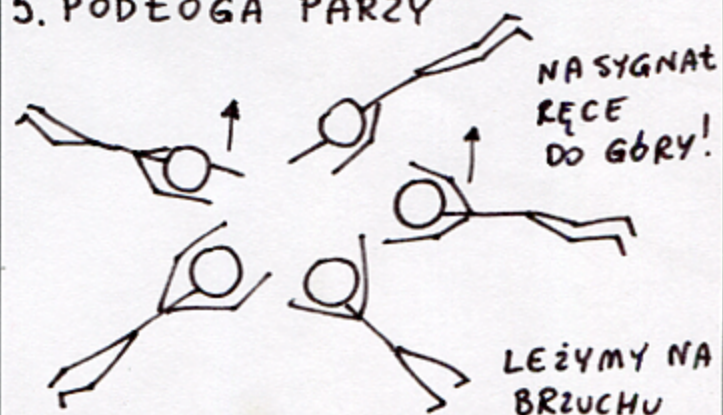 5. PODŁOGA PARZY
NA SYGNAŁ
RĘCE
DO GÓRY!
LEŻYMY NA
BRZUCHU